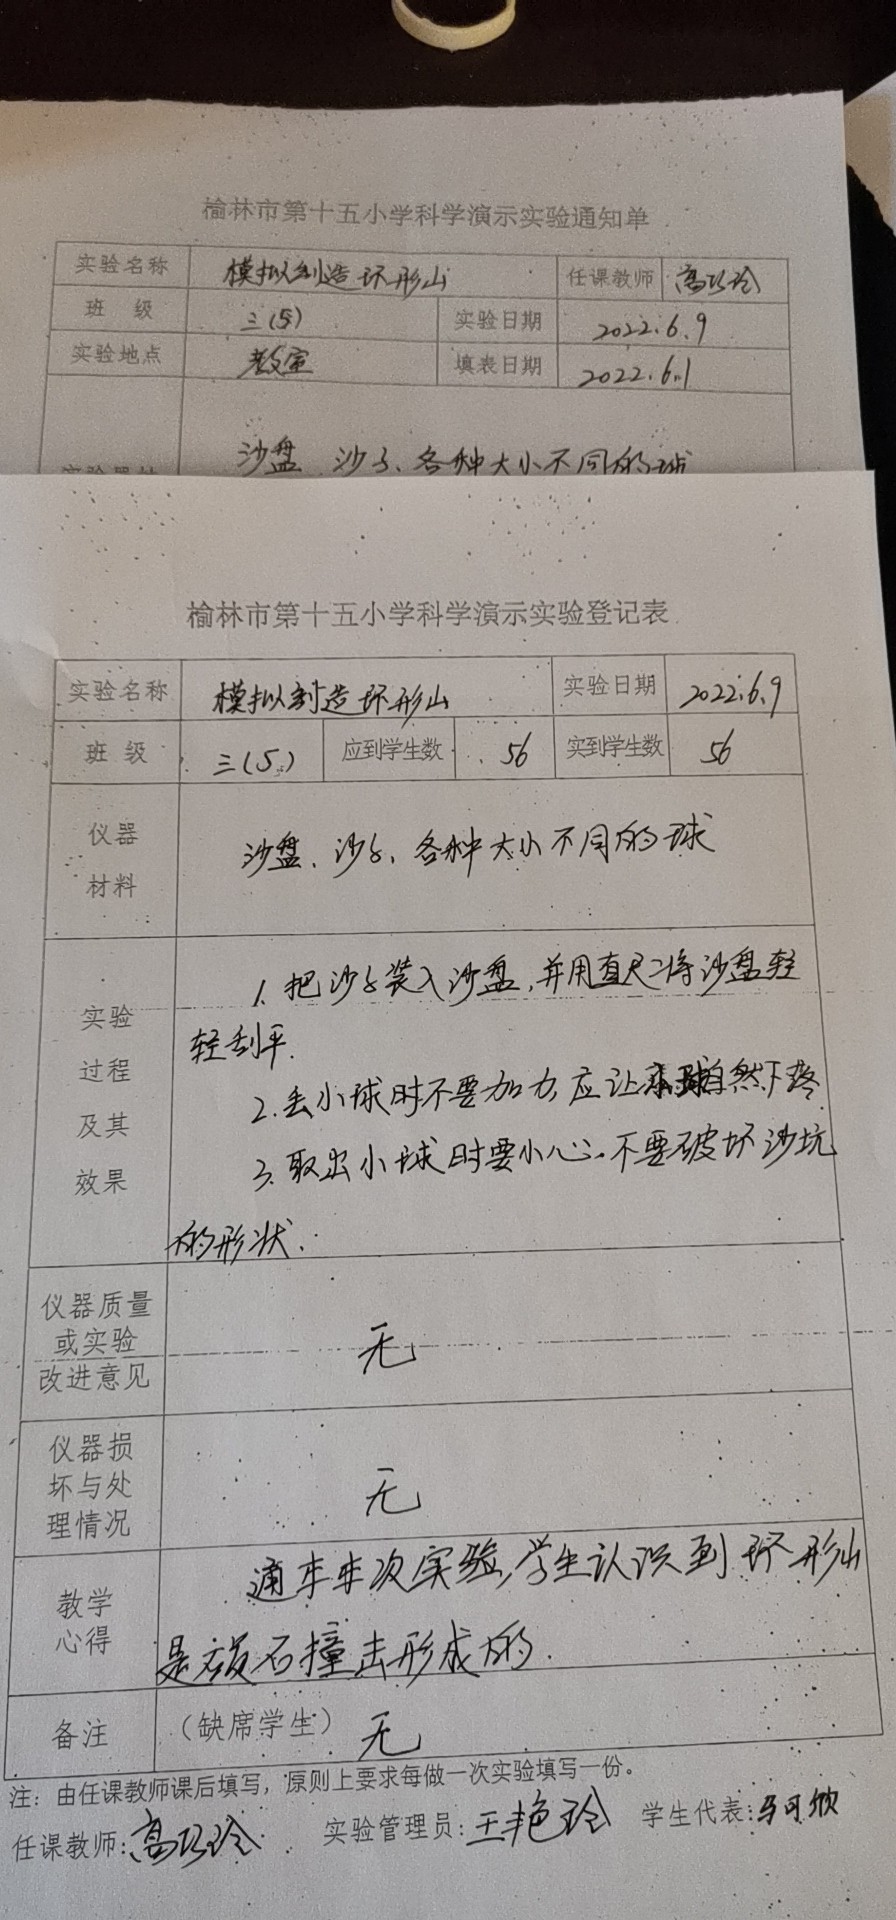 榆林市第十五小学科学演示实验通知单
实验名称 模拟制造环形山 任课教师 高巧玲
班 级 三(5) 实验日期 2022.6.9
实验地点 教室 填表日期 2022.6.1
沙盘、沙子、各种大小不同的球
榆林市第十五小学科学演示实验登记表
实验名称 模拟制造环形山 实验日期 2022.6.9
班 级 三(5) 应到学生数 56 实到学生数 56
仪器
材料
沙盘、沙子、各种大小不同的球
实验
过程
及其
效果
1. 把沙子装入沙盘,并用直尺将沙盘轻
轻刮平.
2. 丢小球时不要加力,应让小球自然下落
3. 取出小球时要小心.不要破坏沙坑
的形状.
仪器质量
或实验
改进意见
无
仪器损
坏与处
理情况
无
教学
心得
通本次实验,学生认识到环形山
是陨石撞击形成的.
备注 (缺席学生) 无
注:由任课教师课后填写,原则上要求每做一次实验填写一份。
任课教师:高巧玲 实验管理员:王艳玲 学生代表:马可欣